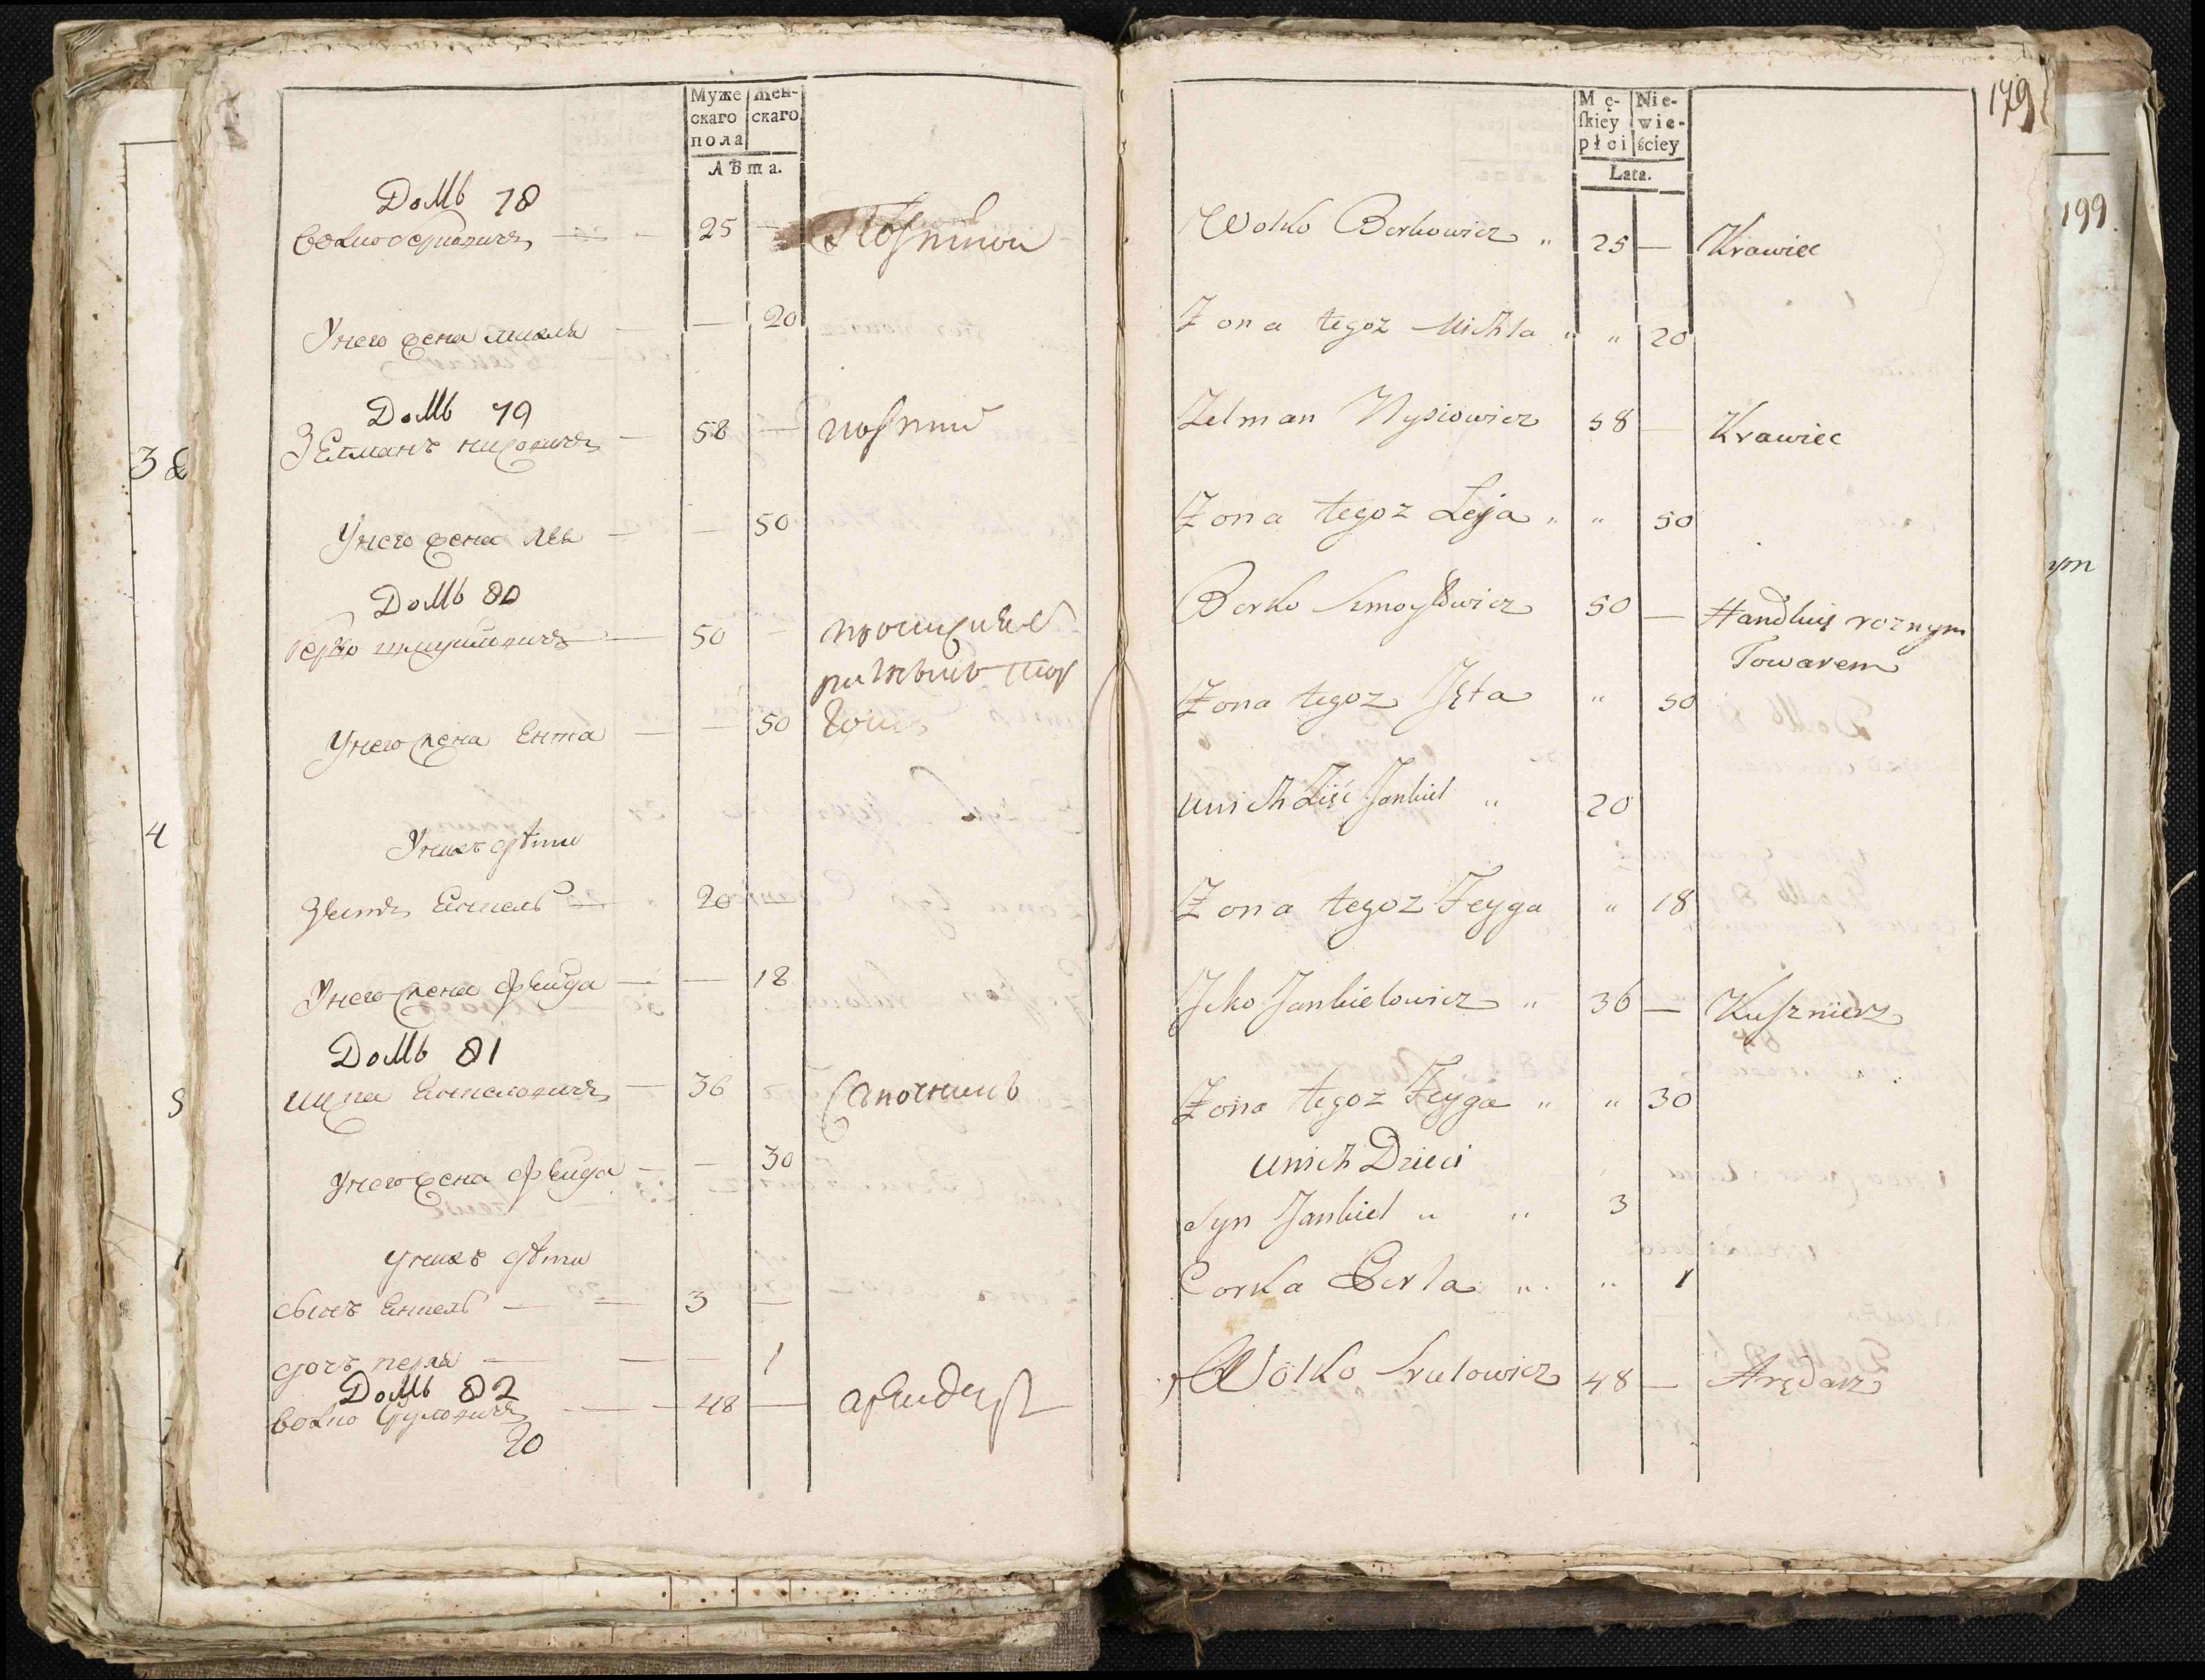 Муже
скаго
пола
жен-
скаго
Лѣта.
Домъ 78
волко берковичъ 25
У него жена михля 20
Домъ 79
Зелманъ нисовичъ 58
У него жена лея 50
Домъ 80
берко шмуиловичъ 50
У него жена Ента 50
У нихъ дѣти
Зять Енкель 20
У него жена феига 18
Домъ 81
ицка Енкеловичъ 36 Сапочникъ
У него жена феига 30
у нихъ дѣти
сынъ Енкель 3
дочъ перла 1
Домъ 82
волко Сруловичъ 48
20
179
Mę-
ſkiey
płci
Nie-
wie-
ściey
Lata.
Wolko Berkowicz „ 25 — Krawiec
Zona tegoz Michla „ „ 20
Zelman Nysiowicz 58 — Krawiec
Zona tegoz Leja „ „ 50
Berko Szmoylowicz 50 — Handluię roznym
Towarem
Zona tegoz Jęta „ 50
unich Zięć Jankiel „ 20
Zona tegoz Feyga „ 18
Jcko Jankielowicz „ 36 — Kuſznierz
Zona tegoz Feyga „ „ 30
unich Dzieci
Syn Jankiel „ „ 3
Corka Perla „ „ 1
Wolko Srulowicz 48 — Arędarz
199
ym
3
4
5